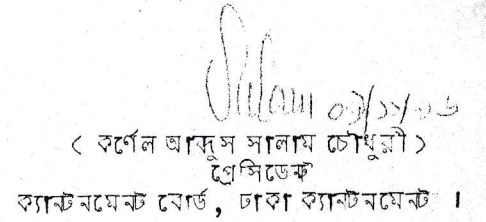 ০১/১১/০৬
( কর্ণেল আব্দুস সালাম চৌধুরী )
প্রেসিডেন্ট
ক্যান্টনমেন্ট বোর্ড, ঢাকা ক্যান্টনমেন্ট ।